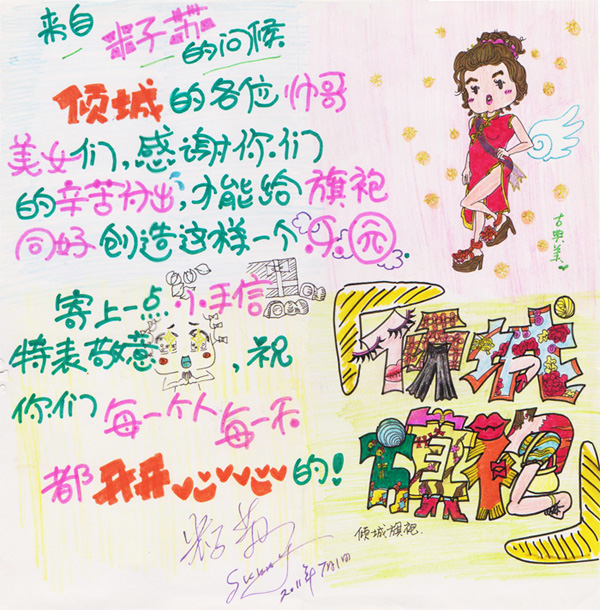 来自
籽苏
的问候
倾城的各位帅哥
美女们,感谢你们
的辛苦付出,才能给旗袍
同好创造这样一个乐园.
寄上一点小手信
特表敬意,祝
你们每一个人每一天
都开开心心的!
籽苏
2011年7月1日
古典美
倾城
旗袍
倾城旗袍.